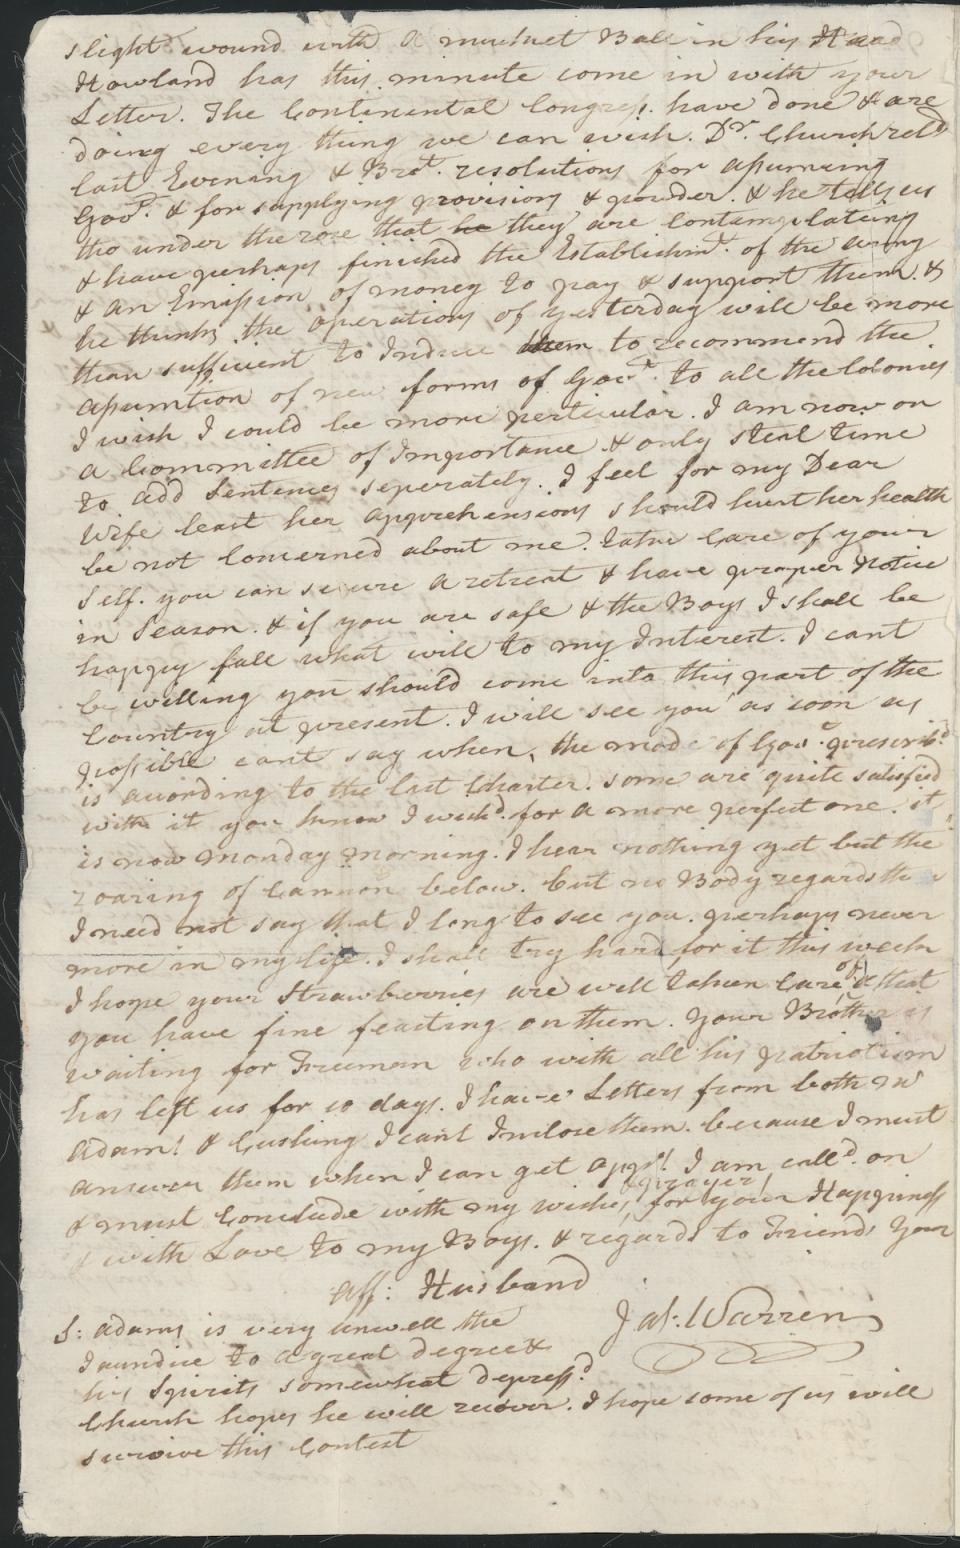 slight wound with a musket Ball in his Head
Howland has this minute come in with your
Letter. The Continental Congress. have done & are
doing every thing we can wish. Dr. Church retd.
last Evening & Brot. resolutions for assuming
Govt. & for supplying provisions & powder. & he tells us
tho under the rose that he they are contemplateing
& have perhaps finished the Establishmt. of the army
& an Emission of money to pay & support them. &
he thinks the operations of yesterday will be more
than sufficient to Induce them to recommend the
assumtion of new forms of Govt. to all the Colonies
I wish I could be more perticular. I am now on
a Committee of Importance & only steal time
to add Sentences seperately. I feel for my Dear
Wife least her apprehensions should hurt her health
be not Concerned about me. take Care of your
Self. you can secure a retreat & have proper Notice
in Season. & if you are safe & the Boys I shall be
happy fall what will to my Interest. I cant
be willing you should come into this part of the
Country at present. I will see you as soon as
possible cant say when, the mode of Govt. prescrib'd
is according to the last Charter. some are quite satisfied
with it you know I wish'd for a more perfect one. it
is now monday morning. I hear nothing yet but the
roaring of Cannon below. but no Body regards them
I need not say that I long to see you. perhaps never
more in my life. I shall try hard for it this week
I hope your Strawberries are well taken Care of & that
you have fine feasting on them. Your Brother is
waiting for Freeman who with all his patriotism
has left us for 10 days. I have Letters from both Mr
Adams & Cushing I cant Inclose them. because I must
answer them when I can get oppy. I am call'd on
& must Conclude with my wishes & prayers for your Happiness
& with Love to my Boys. & regards to Friends Your
Aff: Husband
Jas. Warren
S: Adams is very unwell the
Jaundice to a great degree &
his Spirits somewhat depress'd
Church hopes he will recover. I hope some of us will
survive this Contest